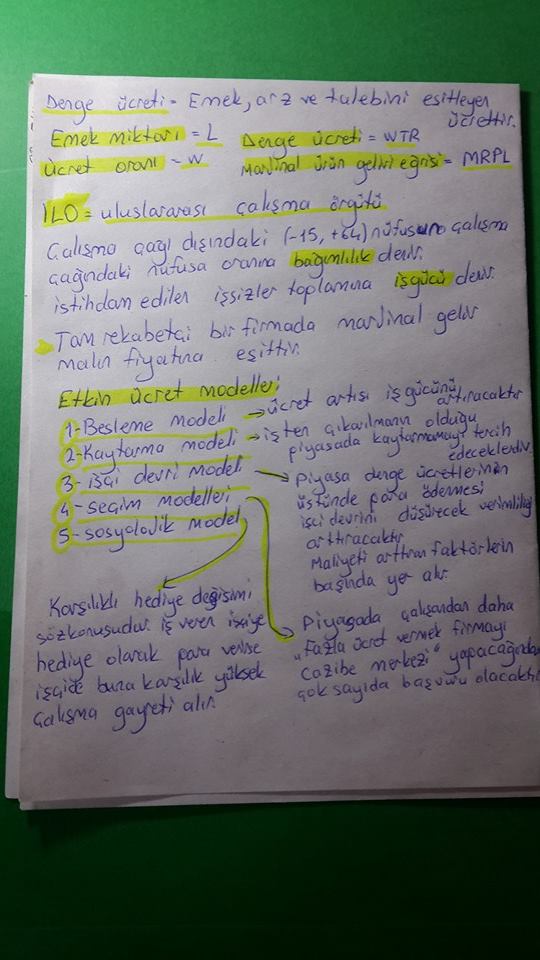 Denge ücreti = Emek, arz ve talebini eşitleyen
ücrettir.
Emek miktarı = L
Denge ücreti = WTR
Ücret oranı = W
Marjinal ürün geliri eğrisi = MRPL
ILO = uluslararası çalışma örgütü
Çalışma çağı dışındaki (-15, +64) nüfusun çalışma
çağındaki nüfusa oranına bağımlılık denir.
istihdam edilen işsizler toplamına işgücü denir.
Tam rekabetçi bir firmada marjinal gelir
malın fiyatına eşittir.
Etkin ücret modelleri
1- Besleme modeli → ücret artışı işgücünü
artıracaktır
2- Kaytarma modeli → işten çıkarılmanın olduğu
piyasada kaytarmamayı tercih
edeceklerdir.
3- işçi devri modeli → Piyasa denge ücretlerinin
üstünde para ödemesi
işçi devrini düşürecek verimliliği
arttıracaktır
Maliyeti arttıran faktörlerin
başında yer alır.
4- seçim modelleri
5- sosyolojik model
Karşılıklı hediye değişimi
sözkonusudur. iş veren işçiye
hediye olarak para verirse
işçide buna karşılık yüksek
çalışma gayreti alır.
Piyasada çalışandan daha
"Fazla ücret vermek firmayı
cazibe merkezi" yapacağından
çok sayıda başvuru olacaktır